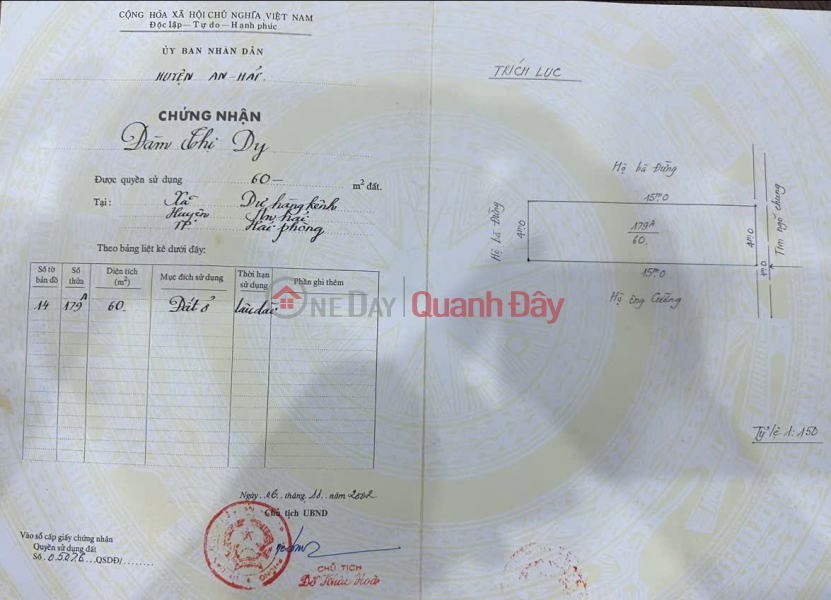 CỘNG HÒA XÃ HỘI CHỦ NGHĨA VIỆT NAM
Độc lập — Tự do — Hạnh phúc
ỦY BAN NHÂN DÂN
HUYỆN AN-HẢI
CHỨNG NHẬN
Đàm Thị Dy
Được quyền sử dụng 60 — m² đất.
Tại: Xã Dư hàng kênh
Huyện An hải
TP Hải phòng
Theo bảng liệt kê dưới đây:
Số tờ bản đồ
Số thửa
Diện tích (m²)
Mục đích sử dụng
Thời hạn sử dụng
Phần ghi thêm
14 179A 60 Đất ở lâu dài
ONEDAY Quanh Đây
Ngày 16 tháng 11 năm 2002
Chủ tịch UBND
Vào sổ cấp giấy chứng nhận
Quyền sử dụng đất
Số 05076 QSDĐ/
CHỦ TỊCH
Đỗ Khắc Hoà
TRÍCH LỤC
Hộ bà Đửng
15m0
Hộ bà Đửng
4m0
179A
60
4m0
1m0
Tim ngõ chung
15m0
Hộ ông Cường
Tỷ lệ 1:150